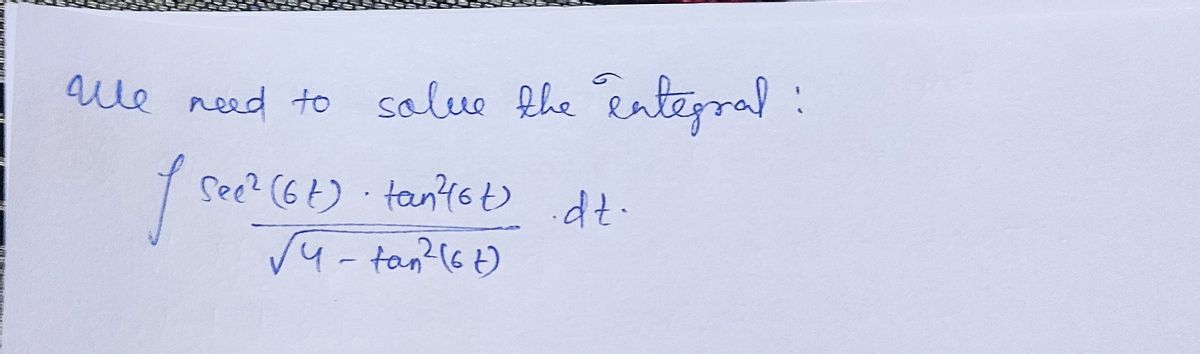 We need to solve the integral :
∫ sec²(6t) · tan²(6t) / √4 - tan²(6t) .dt.